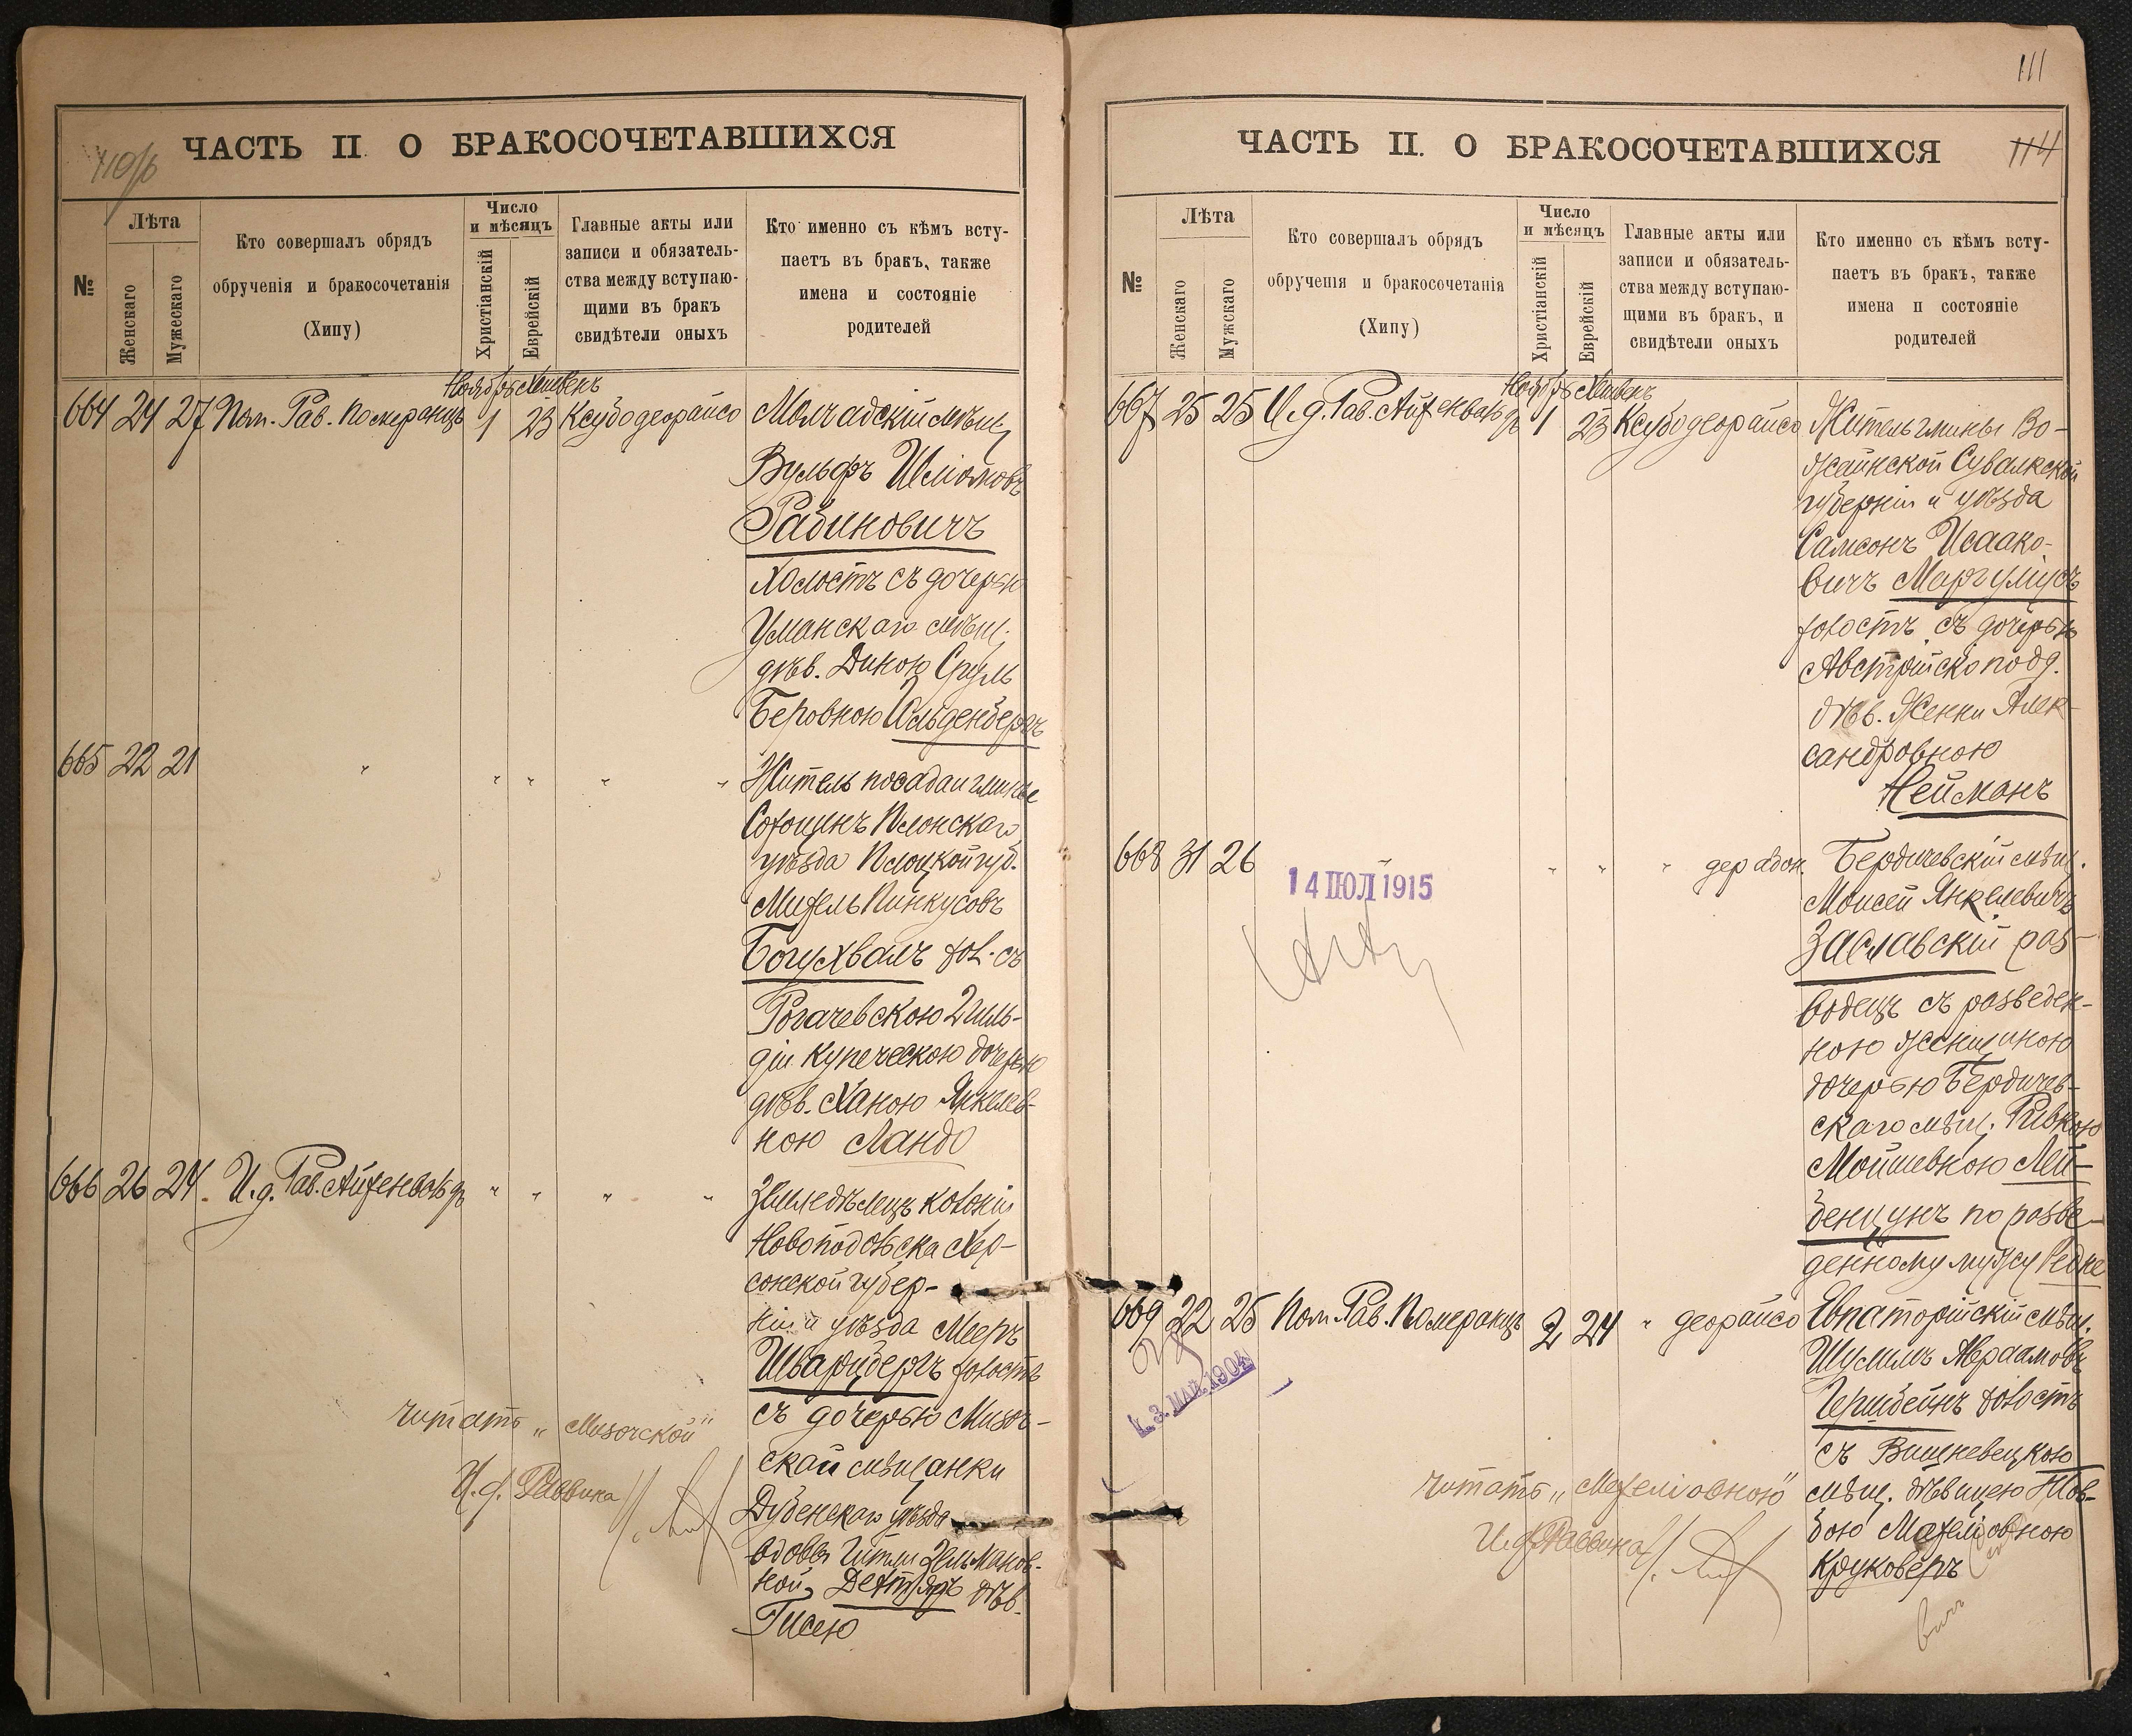 110/б
ЧАСТЬ II О БРАКОСОЧЕТАВШИХСЯ
№
Лѣта
Женскаго
Мужескаго
Кто совершалъ обрядъ
обрученія и бракосочетанія
(Хипу)
Число
и мѣсяцъ
Христіанскій
Еврейскій
Главные акты или
записи и обязатель-
ства между вступаю-
щими въ бракъ
свидѣтели оныхъ
Кто именно съ кѣмъ всту-
паетъ въ бракъ, также
имена и состояніе
родителей
Ноябрь Хешвенъ
664 24 27 Пом. Рав. Померанцъ 1 23 Ксубодеорайсо Молчадскій мѣщ.
Вульфъ Шліомовъ
Рабиновичъ
Холостъ съ дочерью
Уманскаго мѣщ.
дѣв. Диною Сруль
Беровною Гольденбергъ
665 22 21 " " " " " Житель посада и гмины
Сохоцинъ Плонскаго
уѣзда Плоцкой губ.
Михель Пинкусовъ
Богухвалъ хол. съ
Рогачевскою 2 гиль-
діи купеческою дочерью
дѣв. Ханою Янкелев-
ною Ландо
666 26 24 И.д. Рав. Айхенвальдъ " " " " Земледѣлецъ колоніи
Новоподольска Хер-
сонской губер-
ніи и уѣзда Мееръ
Шварцбергъ холостъ
съ дочерью Мизоч-
ской мѣщанки
Дубенскаго уѣзда
вдовы Гитли Зельманов-
ной Дехтяръ дѣв.
Гисею
читать „Мизочской"
И.д. Раввина
111
ЧАСТЬ II. О БРАКОСОЧЕТАВШИХСЯ
114
№
Лѣта
Женскаго
Мужскаго
Кто совершалъ обрядъ
обрученія и бракосочетанія
(Хипу)
Число
и мѣсяцъ
Христіанскій
Еврейскій
Главные акты или
записи и обязатель-
ства между вступаю-
щими въ бракъ, и
свидѣтели оныхъ
Кто именно съ кѣмъ всту-
паетъ въ бракъ, также
имена и состояніе
родителей
Ноябрь Хешвенъ
667 25 25 И.д. Рав. Айхенвальдъ 1 23 Ксубодеорайсо Житель гмины Во-
жайнской Сувалкской
губерніи и уѣзда
Самсонъ Исаако-
вичъ Маргулiусъ
холостъ съ дочерью
Австрійско подд.
дѣв. Женни Алек-
сандровною
Нейманъ
668 31 26 " " " " дерабон. Бердичевскій мѣщ.
14 ІЮЛ 1915
Моисей Янкелевичъ
Заславскій раз-
водецъ съ разведен-
ною женщиною
дочерью Бердичев-
скаго мѣщ. Ривкою
Мойшевною Лей-
бенцунъ по разве-
денному мужу
669 22 25 Пом. Рав. Померанцъ 2 24 " деорайсо Евпаторійскій мѣщ.
Шулимъ Авраамовъ
Гершбейнъ холостъ
съ Вишневецкою
мѣщ. дѣвицею Нов-
бою Мехеліовною
Круковеръ
К. 3. МАЙ. 1904
читать „Мехеліовною"
И.д. Раввина
вичъ